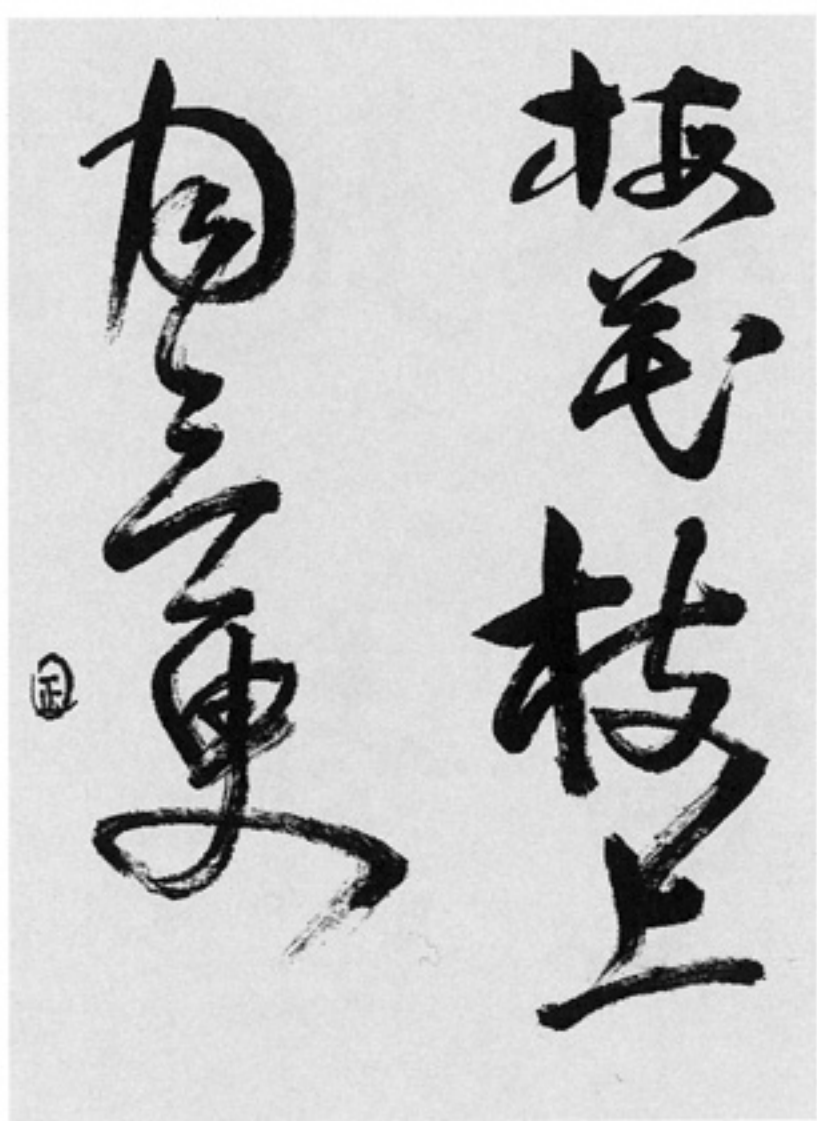 梅花枝上
月三更
正